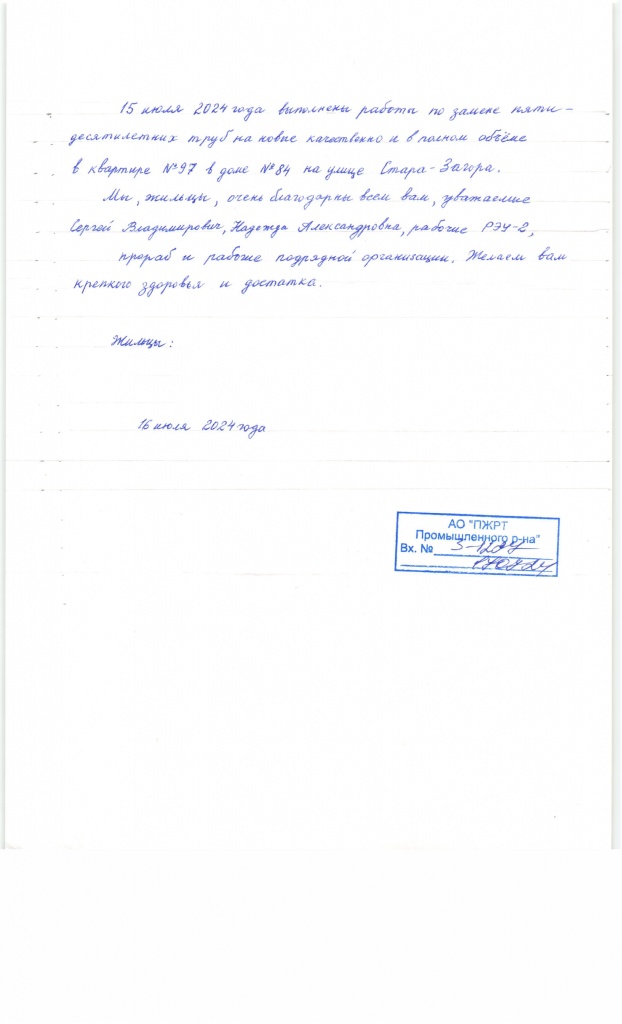 15 июля 2024 года выполнены работы по замене пяти-
десятилетних труб на новые качественно и в полном объёме
в квартире №97 в доме №84 на улице Стара-Загора.
Мы, жильцы, очень благодарны всем вам, уважаемые
Сергей Владимирович, Надежда Александровна, рабочие РЭУ-2,
прораб и рабочие подрядной организации. Желаем вам
крепкого здоровья и достатка.
Жильцы:
16 июля 2024 года
АО "ПЖРТ
Промышленного р-на"
Вх. №